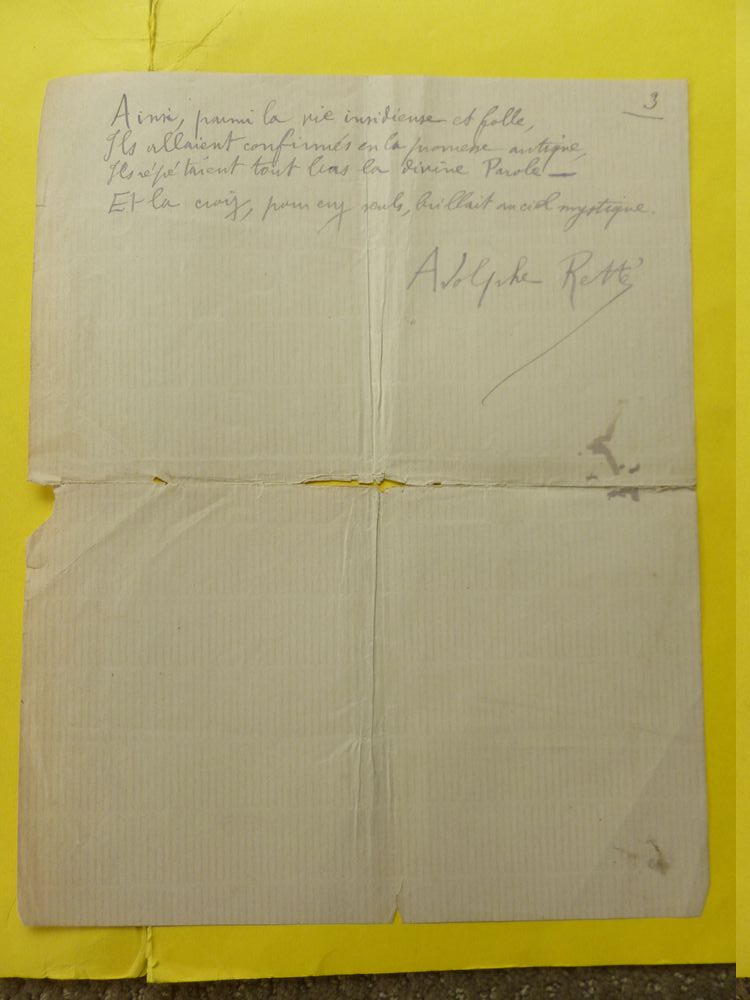 3
Ainsi, parmi la vie insidieuse et folle,
Ils allaient confirmés en la promesse antique,
Ils répétaient tout bas la divine Parole —
Et la croix, pour eux seuls, brillait au ciel mystique.
Adolphe Retté